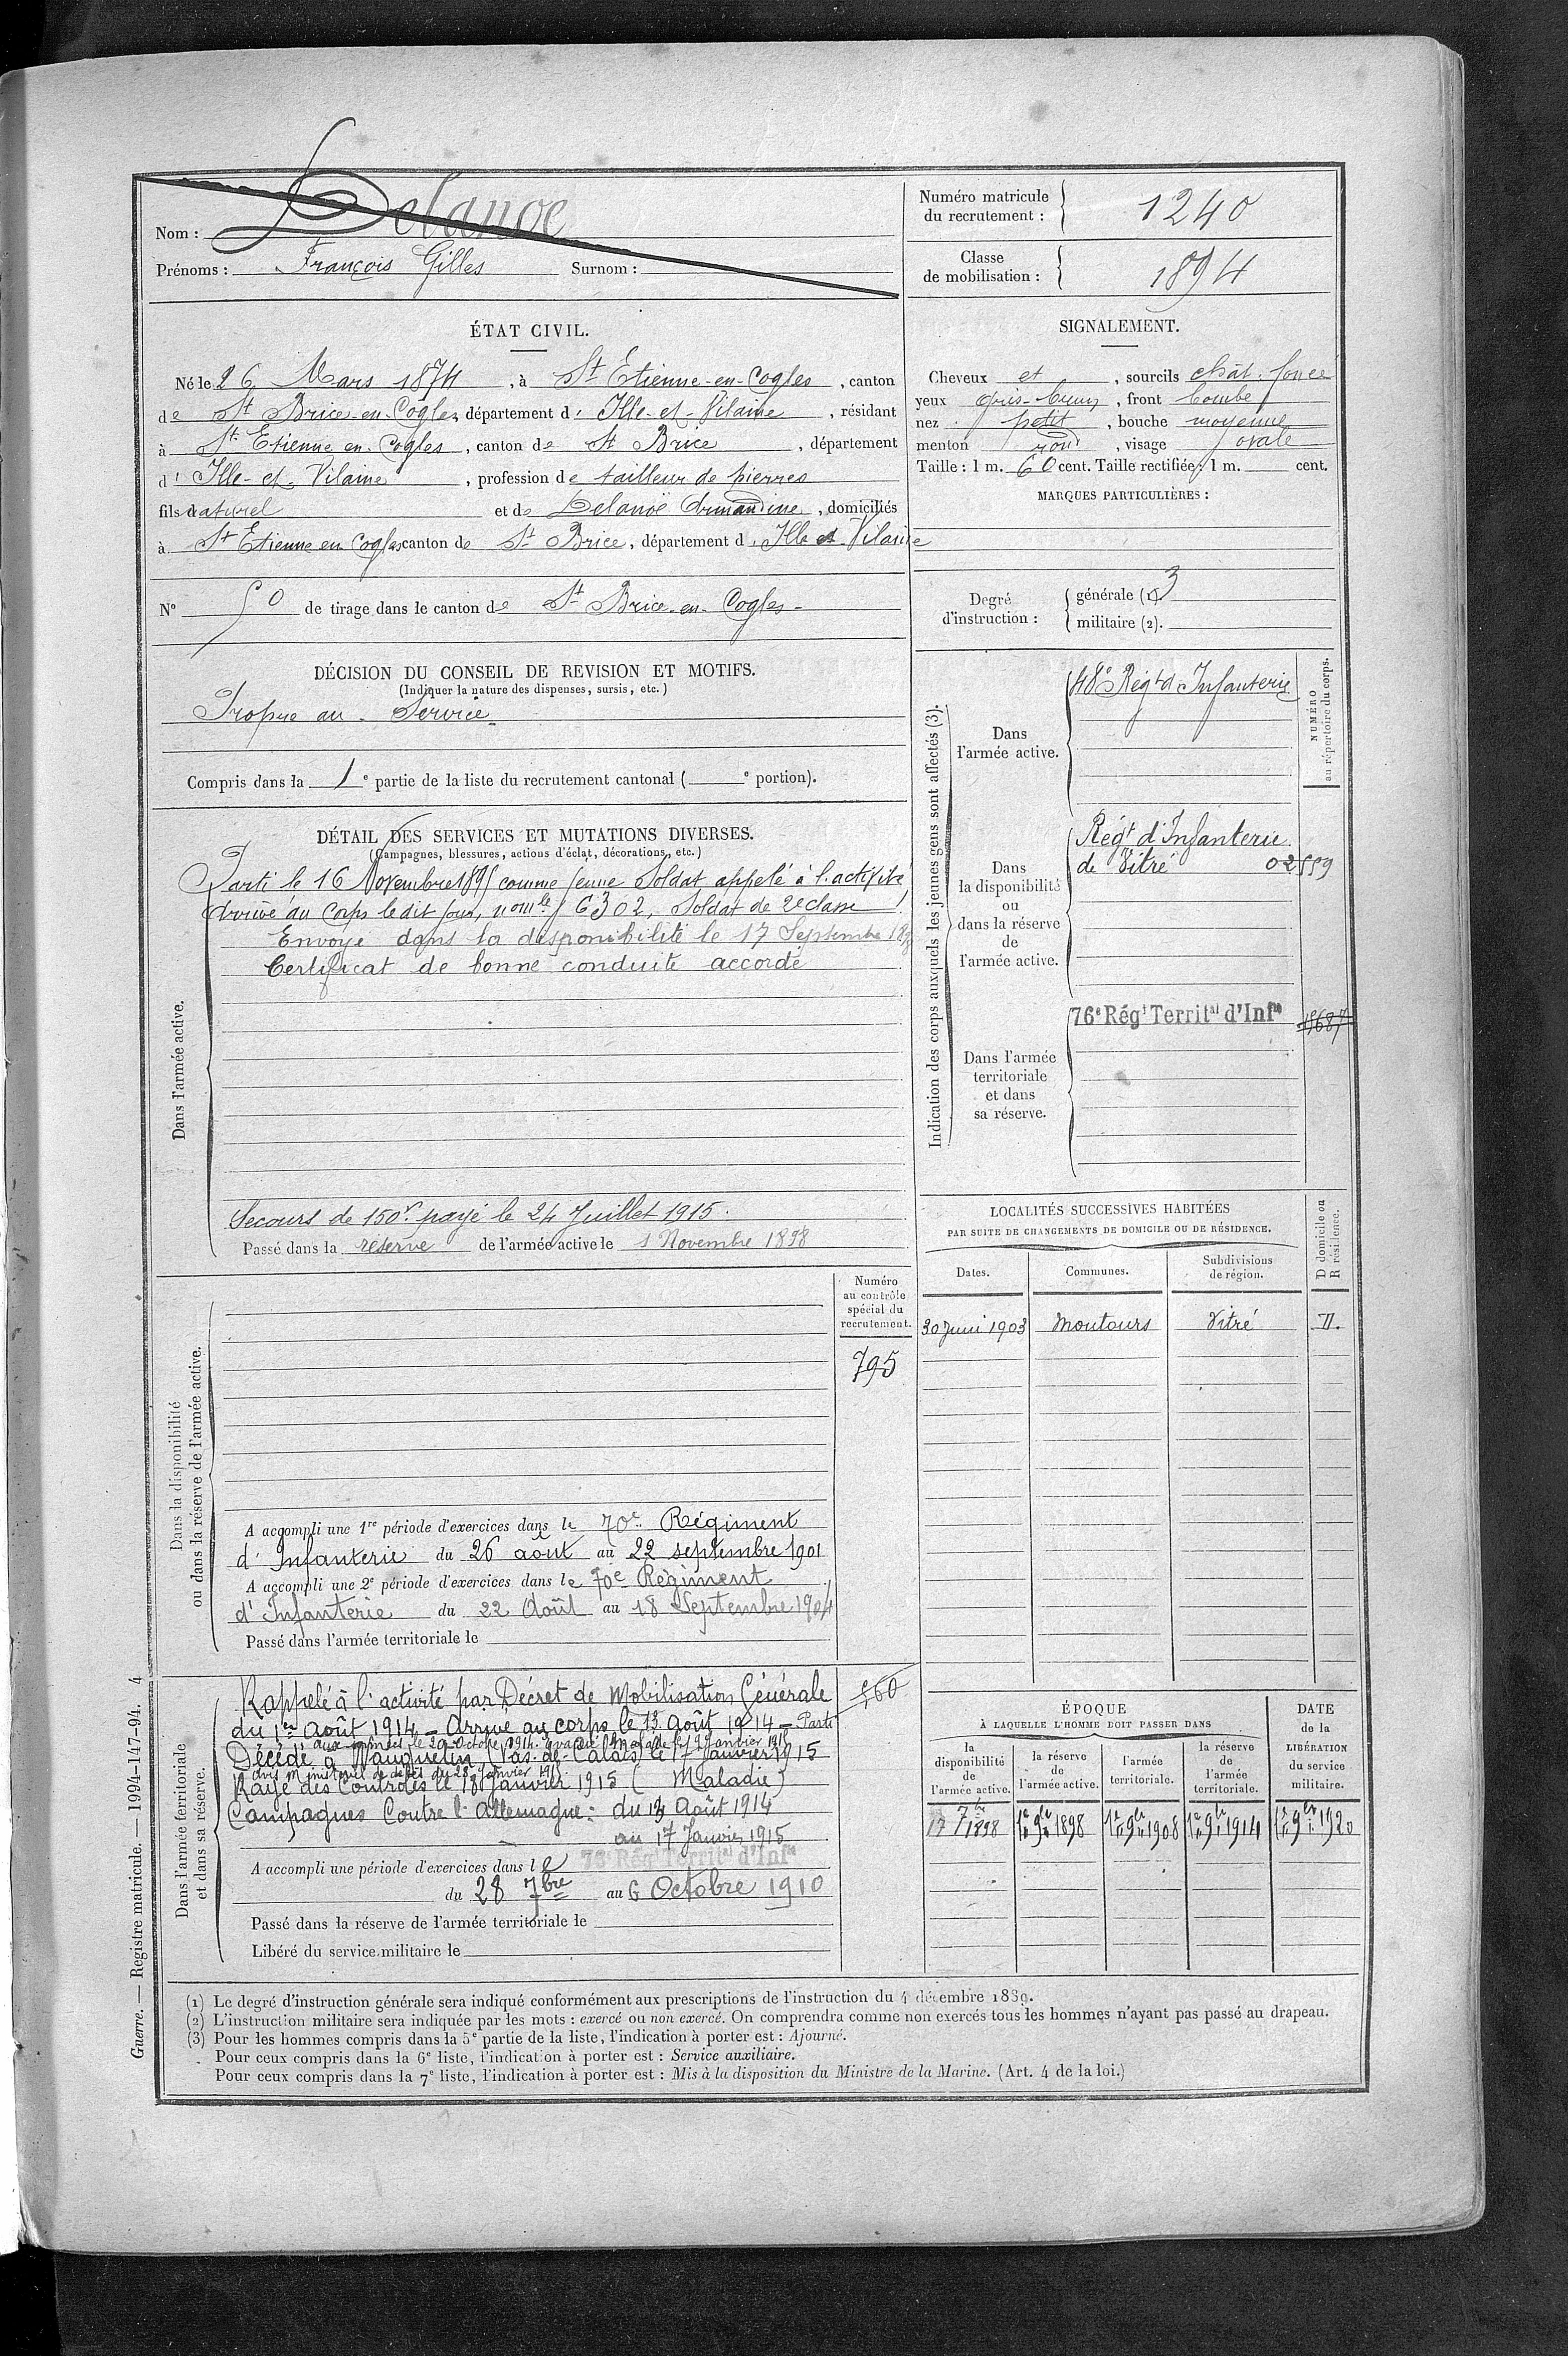 Nom : Delanoë
Prénoms : François Gilles Surnom :
Numéro matricule
du recrutement :
1240
Classe
de mobilisation :
1894
ÉTAT CIVIL.
Né le 26 Mars 1874, à St Etienne-en-Cogles, canton
de St Brice-en-Cogles, département d' Ille-et-Vilaine, résidant
à St Etienne en Cogles, canton de St Brice, département
d' Ille-et-Vilaine, profession de tailleur de pierres
fils naturel et de Delanoë Armandine, domiciliés
à St Etienne en Cogles canton de St Brice, département d' Ille et Vilaine
N° 50 de tirage dans le canton de St Brice-en-Cogles
DÉCISION DU CONSEIL DE REVISION ET MOTIFS.
(Indiquer la nature des dispenses, sursis, etc.)
Propre au Service
Compris dans la 1e partie de la liste du recrutement cantonal ( e portion).
DÉTAIL DES SERVICES ET MUTATIONS DIVERSES.
(Campagnes, blessures, actions d'éclat, décorations, etc.)
Dans l'armée active.
Parti le 16 Novembre 1895 comme jeune Soldat appelé à l'activité
Arrivé au Corps le dit jour, nom le 6302, Soldat de 2e classe
Envoyé dans la disponibilité le 17 Septembre 1898
Certificat de bonne conduite accordé
Secours de 150f payé le 24 Juillet 1915.
Passé dans la réserve de l'armée active le 1 Novembre 1898
Dans la disponibilité
ou dans la réserve de l'armée active.
Numéro
au contrôle
spécial du
recrutement.
795
A accompli une 1re période d'exercices dans le 70e Régiment
d'Infanterie du 26 août au 22 septembre 1901
A accompli une 2e période d'exercices dans le 70e Régiment
d'Infanterie du 22 Août au 18 Septembre 1904
Passé dans l'armée territoriale le
Dans l'armée territoriale
et dans sa réserve.
560
Rappelé à l'activité par Décret de Mobilisation Générale
du 1er Août 1914 - Arrivé au corps le 13 août 1914 - Parti
aux armées le 20 Octobre 1914. évacué Malade le Janvier 1915
Décédé à Mauquelin (Pas-de-Calais) le 17 Janvier 1915
avis Ministériel de décès du 28 Janvier 1915
Rayé des Contrôles le 18 Janvier 1915 (Maladie)
Campagnes Contre l'Allemagne : du 13 Août 1914
au 17 Janvier 1915
A accompli une période d'exercices dans le 76e Régt Territal d'Infie
du 28 7bre au 6 Octobre 1910
Passé dans la réserve de l'armée territoriale le
Libéré du service militaire le
SIGNALEMENT.
Cheveux et, sourcils chât. foncé
yeux gris-bruns, front bombé
nez petit, bouche moyenne
menton rond, visage ovale
Taille : 1 m. 60 cent. Taille rectifiée : 1 m. cent.
MARQUES PARTICULIÈRES :
Degré
d'instruction :
générale (1) 3
militaire (2).
Indication des corps auxquels les jeunes gens sont affectés (3).
NUMÉRO
au répertoire du corps.
Dans
l'armée active.
48e Régt d'Infanterie
Dans
la disponibilité
ou
dans la réserve
de
l'armée active.
Régt d'Infanterie
de Vitré 02559
Dans l'armée
territoriale
et dans
sa réserve.
76e Régt Territal d'Infie
LOCALITÉS SUCCESSIVES HABITÉES
PAR SUITE DE CHANGEMENTS DE DOMICILE OU DE RÉSIDENCE.
Dates. Communes. Subdivisions
de région.
D domicile ou
R résidence.
30 Juin 1903 Montours Vitré D.
ÉPOQUE
À LAQUELLE L'HOMME DOIT PASSER DANS
DATE
de la
LIBÉRATION
du service
militaire.
la
disponibilité
de
l'armée active.
la réserve
de
l'armée active.
l'armée
territoriale.
la réserve
de
l'armée
territoriale.
17 7bre 1898 1er 9bre 1898 1er 9bre 1908 1er 9bre 1914 1er 9bre 1920
(1) Le degré d'instruction générale sera indiqué conformément aux prescriptions de l'instruction du 4 décembre 1889.
(2) L'instruction militaire sera indiquée par les mots : exercé ou non exercé. On comprendra comme non exercés tous les hommes n'ayant pas passé au drapeau.
(3) Pour les hommes compris dans la 5e partie de la liste, l'indication à porter est : Ajourné.
Pour ceux compris dans la 6e liste, l'indication à porter est : Service auxiliaire.
Pour ceux compris dans la 7e liste, l'indication à porter est : Mis à la disposition du Ministre de la Marine. (Art. 4 de la loi.)
Guerre. — Registre matricule. — 1994-147-94. 4